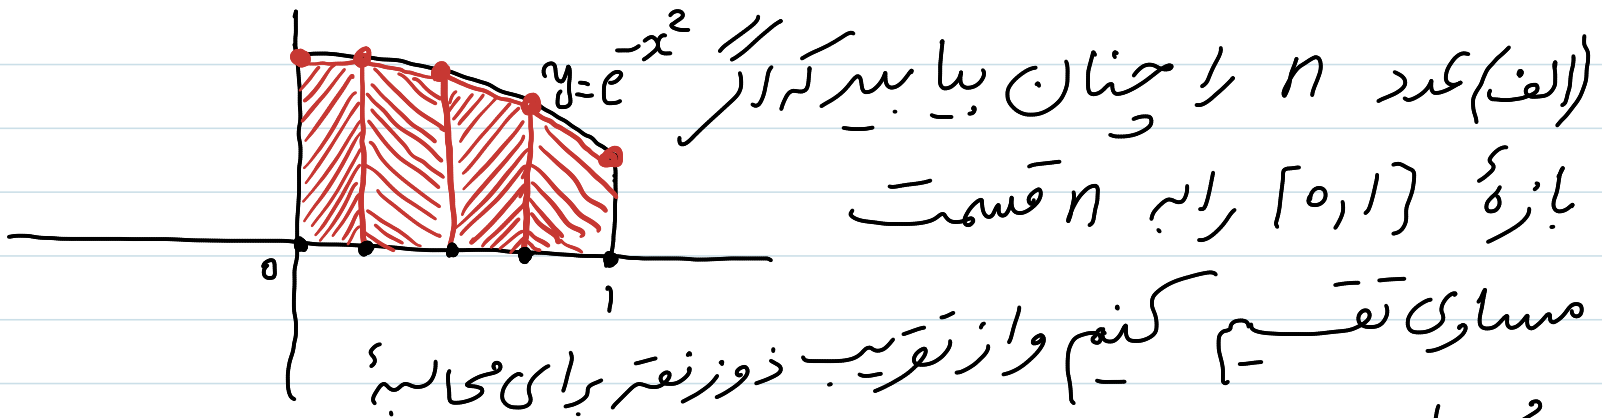 (الف) عدد n را چنان بیابید که اگر
بازهٔ [0,1] را به n قسمت
مساوی تقسیم کنیم و از تقریب ذوزنقه برای محاسبهٔ
y=e^{-x^2}
0
1